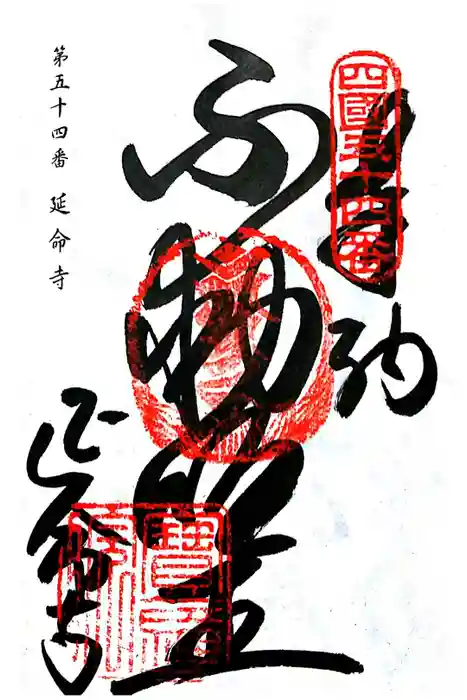 四國五十四番
奉納
不動明王
延命寺
第五十四番 延命寺